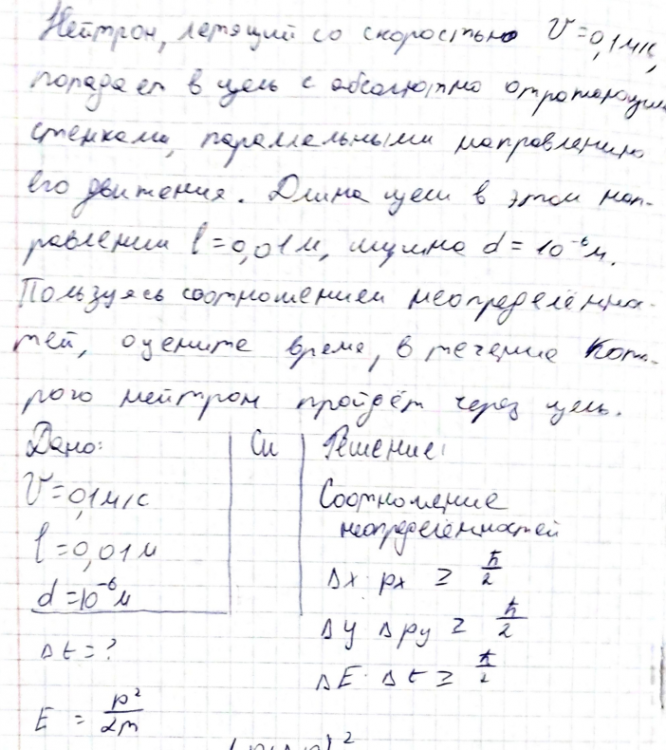 Нейтрон, летящий со скоростью V=0,1 м/с,
попадает в щель с абсолютно отражающими
стенками, параллельными направлению
его движения. Длина щели в этом нап-
равлении l=0,01 м, ширина d = 10⁻⁶ м.
Пользуясь соотношением неопределённос-
тей, оцените время, в течение кото-
рого нейтрон пройдёт через щель.
Дано: Си Решение:
V=0,1 м/с Соотношение
неопределённостей
l=0,01 м
Δx · px ≥ ħ/2
d=10⁻⁶ м
Δy Δpy ≥ ħ/2
Δt=?
ΔE · Δt ≥ ħ/2
E = p²/2m